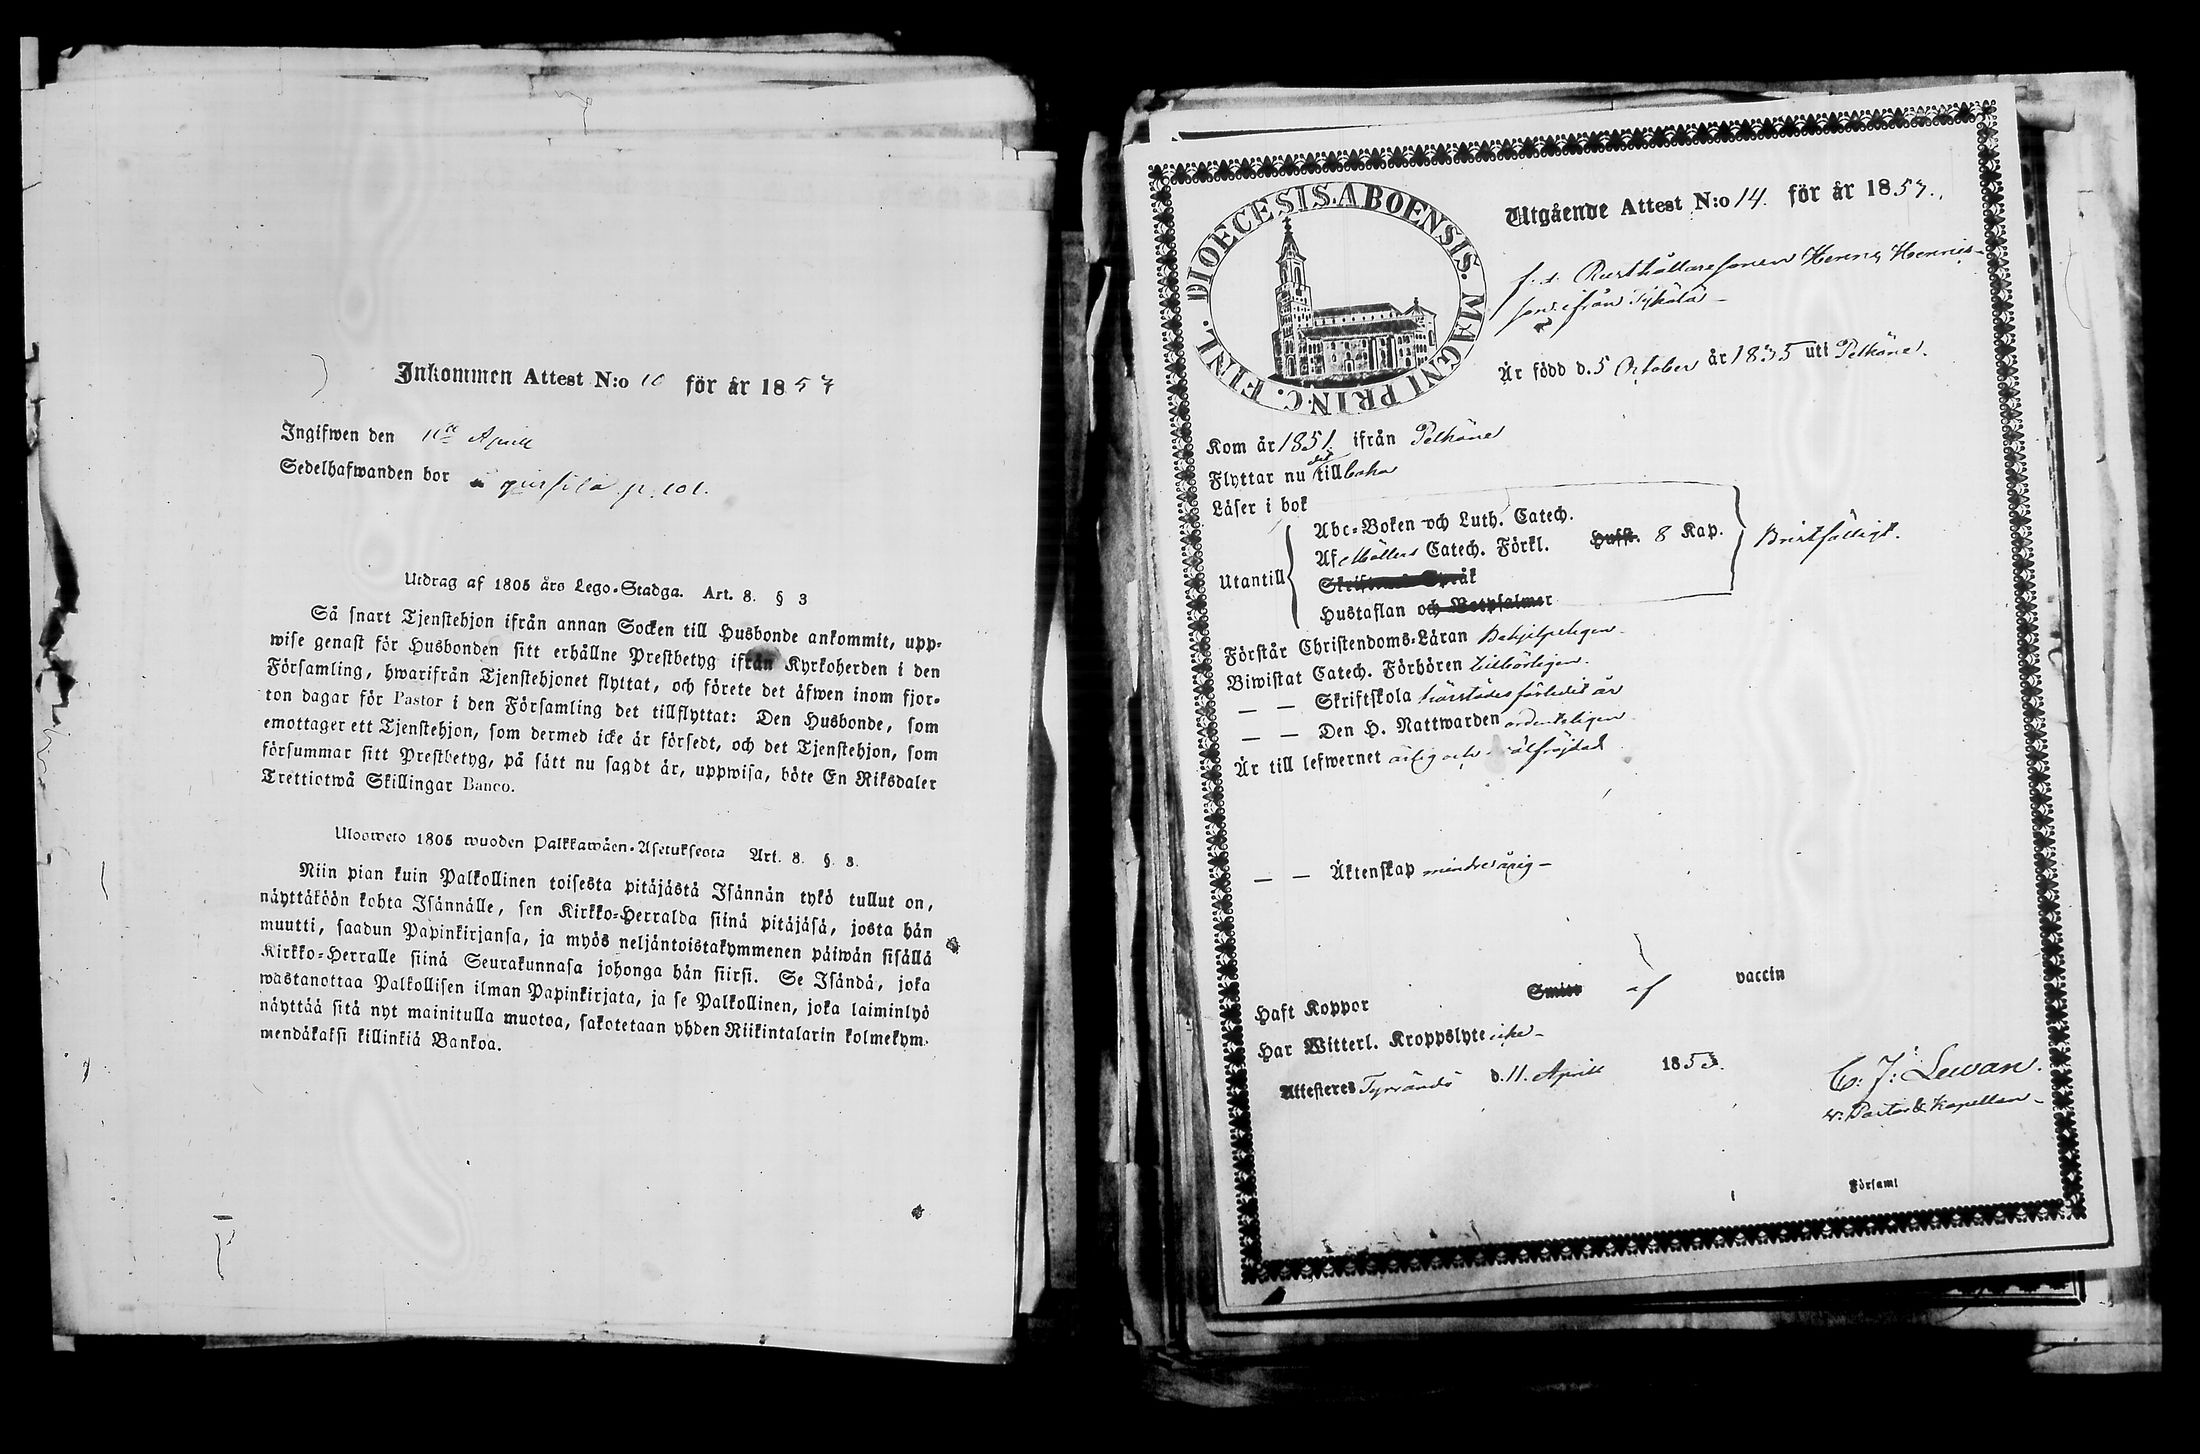 Inkommen Attest N:o 10 för år 1857
Ingifwen den 11te Aprill
Sedelhafwanden bor i p. 101.
Utdrag af 1805 års Lego-Stadga. Art. 8. § 3
Så snart Tjenstehjon ifrån annan Socken till Husbonde ankommit, upp-
wise genast för Husbonden sitt erhållne Prestbetyg ifrån Kyrkoherden i den
Församling, hwarifrån Tjenstehjonet flyttat, och förete det äfwen inom fjor-
ton dagar för Pastor i den Församling det tillflyttat: Den Husbonde, som
emottager ett Tjenstehjon, som dermed icke är försedt, och det Tjenstehjon, som
försummar sitt Prestbetyg, på sätt nu sagdt är, uppwisa, böte En Riksdaler
Trettiotwå Skillingar Banco.
Ulosweto 1805 wuoden Palkkawäen-Asetuksesta Art. 8. §. 3.
Niin pian kuin Palkollinen toisesta pitäjästä Isännän tykö tullut on,
näyttäköön kohta Isännälle, sen Kirkko-Herralda siinä pitäjäsä, josta hän
muutti, saadun Papinkirjansa, ja myös neljäntoistakymmenen päiwän sisällä
Kirkko-Herralle siinä Seurakunnasa johonga hän siirsi. Se Isändä, joka
wastanottaa Palkollisen ilman Papinkirjata, ja se Palkollinen, joka laiminlyö
näyttää sitä nyt mainitulla muotoa, sakotetaan yhden Riikintalarin kolmekym-
mendäkaksi killinkiä Bankoa.
DIOECESIS. ABOENSIS. MAGNI PRINC. FINL.
Utgående Attest N:o 14. för år 1857.
f.d. Rusthållaresonen Henric Henrics-
son ifrån
Är född d. 5 October år 1835 uti Pelkäne.
Kom år 1851 ifrån Pelkäne
Flyttar nu dit tillbaka
Läser i bok
Abc-Boken och Luth. Catech.
Af Möllers Catech. Förkl. Hufst. 8 Kap.
Bristfälligt.
Utantill
Skriftenes Språk
Hustaflan och Botpsalmer
Förstår Christendoms-Läran Behjelpeligen
Biwistat Catech. Förhören tillbörligen.
— — Skriftskola härstädes förledit år
— — Den H. Nattwarden ordenteligen
Är till lefwernet ärlig och wälfrejdad
— — Äktenskap minderårig —
Haft Koppor Smitt af vaccin
Har Witterl. Kroppslyte icke —
Attesteres Tyrvändö d. 11. Aprill 1853.
C. J: Lewan.
v. Pastor & Kapellan —
Församl